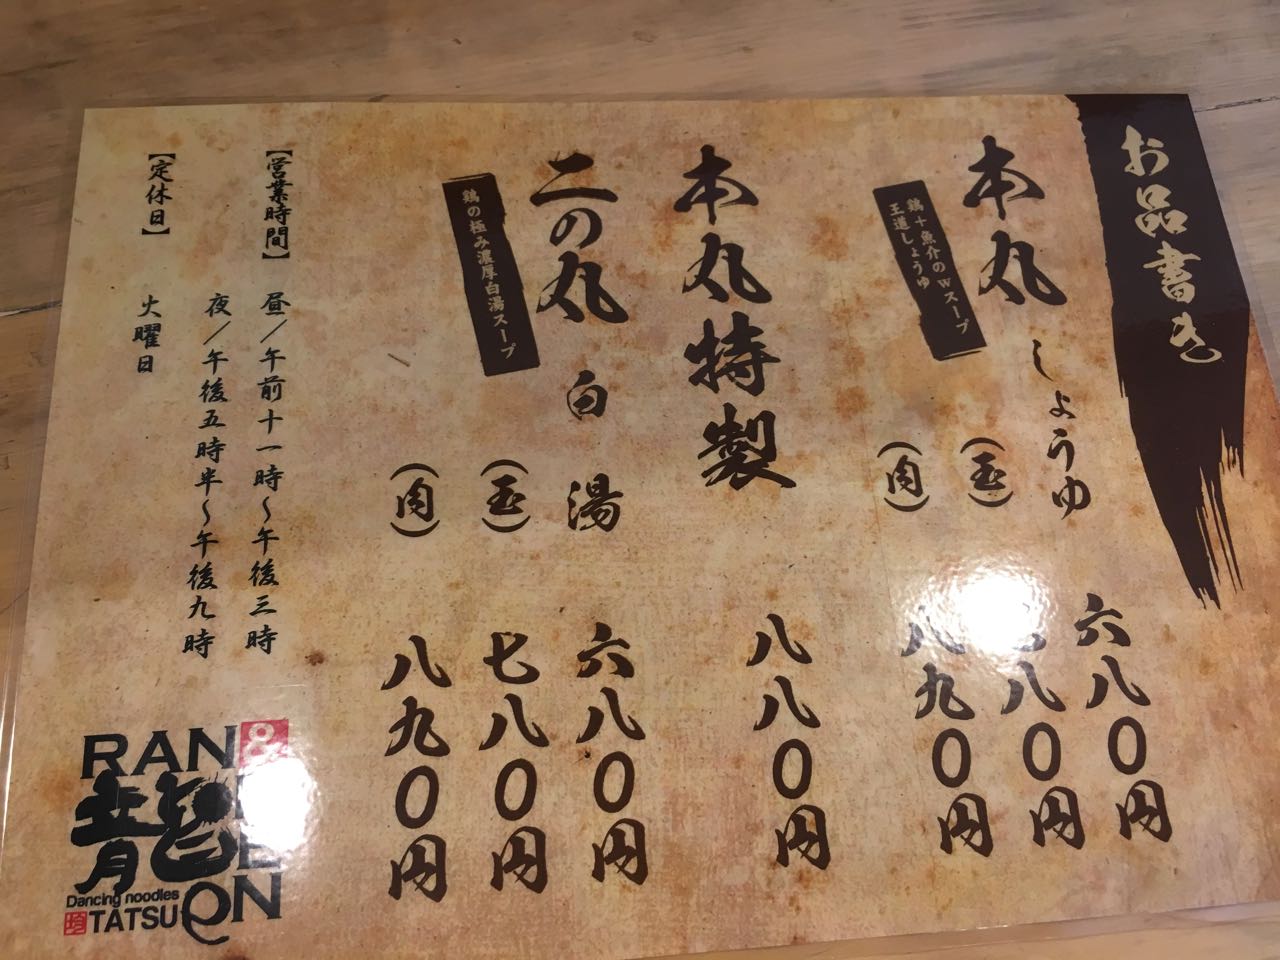 お品書き
本丸 しょうゆ 六八〇円
鶏+魚介のWスープ
王道しょうゆ
(玉) 八〇円
(肉) 八九〇円
本丸特製 八八〇円
二の丸 白湯 六八〇円
鶏の極み濃厚白湯スープ
(玉) 七八〇円
(肉) 八九〇円
【営業時間】 昼/午前十一時~午後三時
夜/午後五時半~午後九時
【定休日】 火曜日
RAN &
龍
Dancing noodles
TATSU
EN